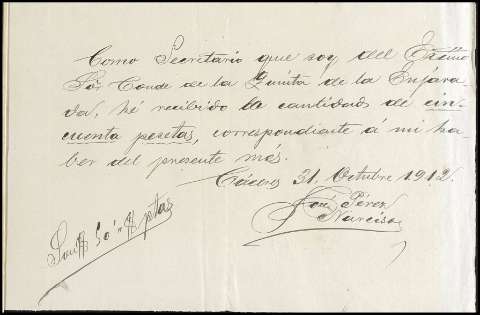 Como Secretario que soy del Excmo
Sor Conde de la Quinta de la Enjara-
da, hé recibido la cantidad de cin-
cuenta pesetas, correspondiente á mi ha-
ber del presente més.
Cáceres 31. Octubre 1912.
José Pérez
Narciso
Son # 50'" # ptas